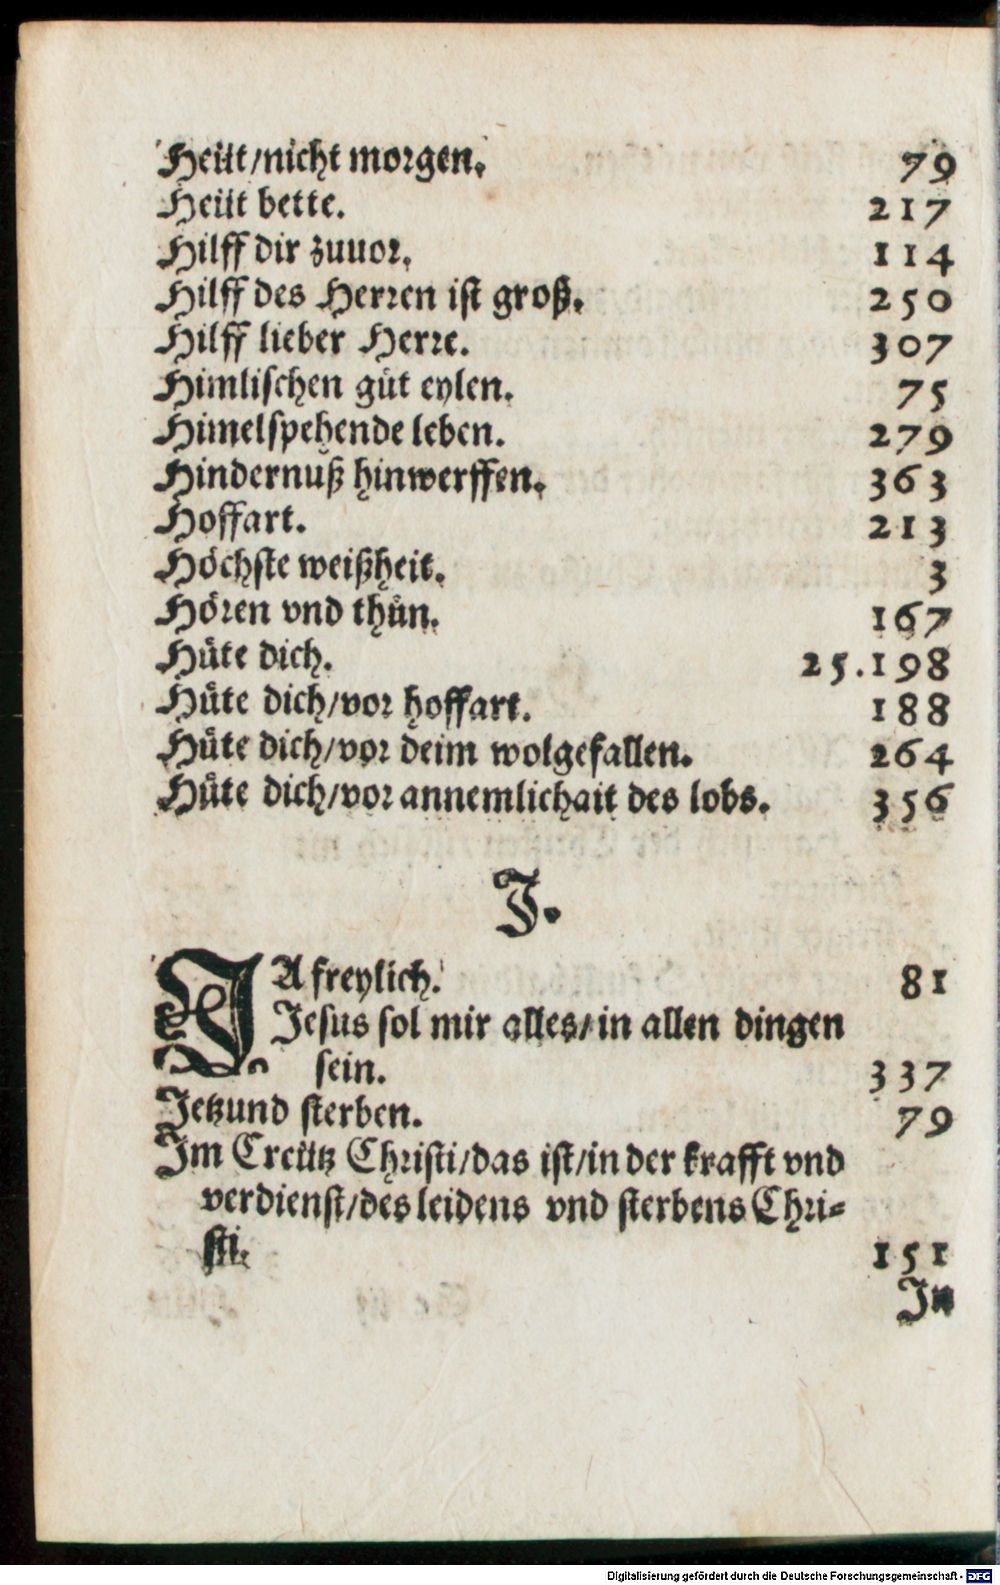 Heüt/nicht morgen. 79
Heüt bette. 217
Hilff dir zuuor. 114
Hilff des Herren ist groß. 250
Hilff lieber Herre. 307
Himlischen güt eylen. 75
Himelspehende leben. 279
Hindernuß hinwerffen. 363
Hoffart. 213
Höchste weißheit. 3
Hören vnd thůn. 167
Hüte dich. 25.198
Hüte dich/vor hoffart. 188
Hüte dich/vor deim wolgefallen. 264
Hüte dich/vor annemlichait des lobs. 356
J.
JA freylich. 81
Jesus sol mir alles/in allen dingen
sein. 337
Jetzund sterben. 79
Jm Creütz Christi/das ist/in der krafft vnd
verdienst/des leidens vnd sterbens Chri-
sti. 151
Jn
Digitalisierung gefördert durch die Deutsche Forschungsgemeinschaft - DFG